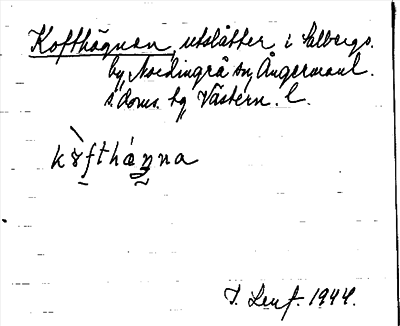 Kofthägnan, utslåtter i Salbergs.
by, Nordingrå sn, Ångermanl.
s. doms. hg Västern. l.
kɤ̀ftháŋna
T. Lenf. 1944.